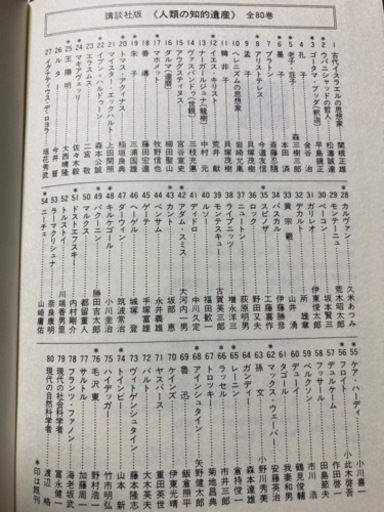 講談社版 《人類の知的遺産》 全80巻
1 古代イスラエルの思想家 関根正雄
2 ウパニシャッドの哲人 松濤誠達
3 ゴータマ・ブッダ(釈迦) 早島鏡正
4 孔子 金谷治
5 老子・荘子 森三樹三郎
6 墨子 本田済
7 プラトン 斎藤忍随
8 アリストテレス 今道友信
9 孟子 貝塚茂樹
10 ヘレニズムの思想家 岩崎允胤
11 韓非 貝塚茂樹
12 イエス・キリスト 荒井献
13 ナーガールジュナ(龍樹) 中村元
14 ヴァスバンドゥ(世親) 三枝充悳
15 アウグスティヌス 宮谷宣史
16 ダルマ(達磨) 柳田聖山
17 マホメット 牧野信也
18 善導 藤田宏達
19 朱子 三浦国雄
20 トマス・アクィナス 稲垣良典
21 マイスター・エックハルト 上田閑照
22 イブン=ハルドゥーン 森本公誠
23 エラスムス 二宮敬
24 マキアヴェリ 佐々木毅
25 王陽明 大西晴隆
26 ルター 今井晋
27 イグナティウス・デ・ロヨラ 垣花秀武
28 カルヴァン 久米あつみ
29 モンテーニュ 荒木昭太郎
30 ベーコン 坂本賢三
31 ガリレオ 伊東俊太郎
32 デカルト 所雄章
33 黄宗羲 山井湧
34 パスカル 伊藤勝彦
35 スピノザ 工藤喜作
36 ロック 野田又夫
37 ニュートン 荻原明男
38 ライプニッツ 増永洋三
39 モンテスキュー 古賀英三郎
40 ルソー 福田歓一
41 ディドロ 中川久定
42 アダム・スミス 大河内一男
43 カント 坂部恵
44 ベンサム 永井義雄
45 ゲーテ 手塚富雄
46 ヘーゲル 城塚登
47 ダーウィン 筑波常治
48 キルケゴール 小川圭治
49 バクーニン 勝田吉太郎
50 マルクス 都留重人
51 ドストエフスキー 内村剛介
52 トルストイ 川端香男里
53 ラーマクリシュナ 奈良康明
54 ニーチェ 山崎庸佑
55 ケア・ハーディ 小川喜一
56 フロイト 小此木啓吾
57 デュルケーム 作田啓一
58 フッサール 田島節夫
59 ベルクソン 市川浩
60 デューイ 鶴見俊輔
61 タゴール 我妻和男
62 マックス・ウェーバー 安藤英治
63 孫文 小野川秀美
64 ガンディー 森本達雄
65 レーニン 倉持俊一
66 ラッセル 市井三郎
67 トロツキー 菊地昌典
68 アインシュタイン 矢野健太郎
69 魯迅 飯倉照平
70 ケインズ 伊東光晴
71 ヤスパース 重田英世
72 バルト 大木英夫
73 ヴィトゲンシュタイン 藤本隆志
74 トインビー 山本新
75 ハイデッガー 竹市明弘
76 毛沢東 野村浩一
77 サルトル 加藤周一
78 フランツ・ファノン 海老坂武
79 現代の社会科学者 富永健一
80 現代の自然科学者 渡辺格
*印は既刊